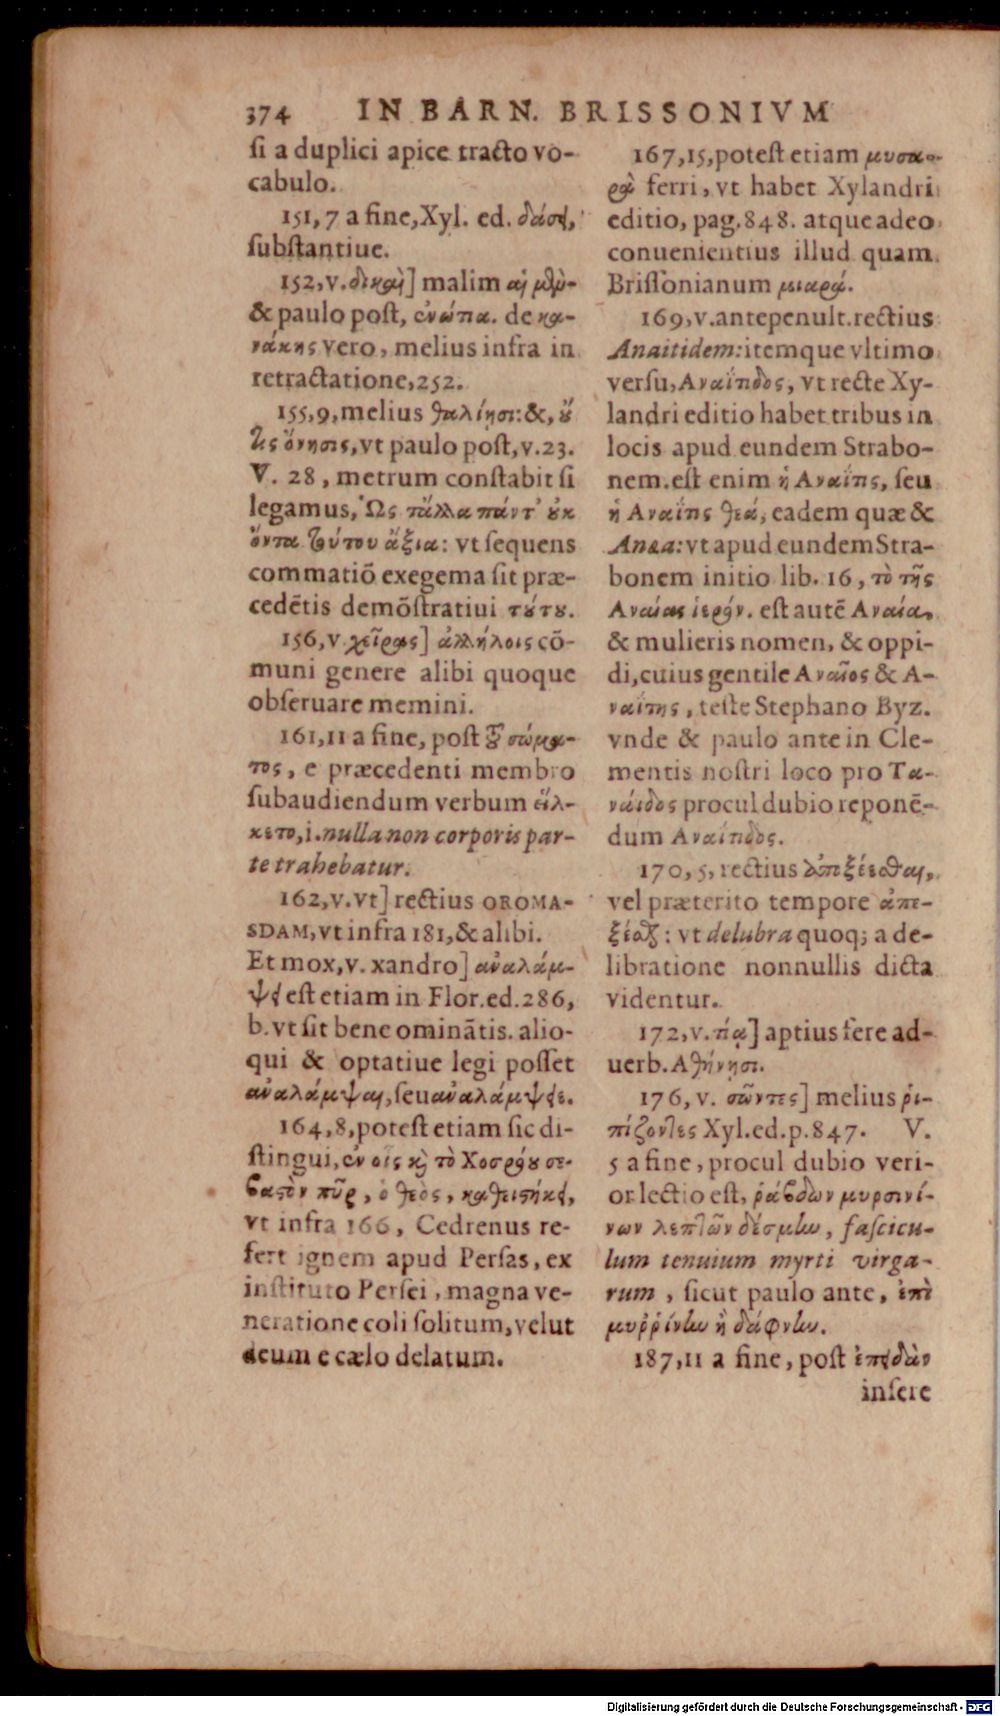 374 IN BARN. BRISSONIVM
ſi a duplici apice tracto vo-
cabulo.
151, 7 a fine, Xyl. ed. δάσει,
ſubſtantiue.
152, v. δικαὴ] malim αἱ μὲν-
& paulo poſt, ἐνώπια. de κα-
νάκης vero, melius infra in
retractatione, 252.
155, 9, melius θαλίῃσι: &, οὔ
τις ὄνησις, vt paulo poſt, v. 23.
V. 28, metrum conſtabit ſi
legamus, Ὡς τἄλλα πάντ' οὐκ
ὄντα τούτου ἄξια: vt ſequens
commatiō exegema ſit præ-
cedētis demōſtratiui τούτου.
156, v. χεῖρας] ἀλλήλοις cō-
muni genere alibi quoque
obſeruare memini.
161, 11 a fine, poſt τοῦ σώμα-
τος, e præcedenti membro
ſubaudiendum verbum εἵλ-
κετο, i. nulla non corporis par-
te trahebatur.
162, v. vt] rectius OROMA-
SDAM, vt infra 181, & alibi.
Et mox, v. xandro] ἀναλάμ-
ψει eſt etiam in Flor. ed. 286,
b. vt ſit bene ominātis. alio-
qui & optatiue legi poſſet
ἀναλάμψαι, ſeu ἀναλάμψειε.
164, 8, poteſt etiam ſic di-
ſtingui, ἐν οἷς καὶ τὸ Χοσρόου σε-
βαστὸν πῦρ, ὁ θεὸς, καθειστήκει,
vt infra 166, Cedrenus re-
fert ignem apud Perſas, ex
inſtituto Perſei, magna ve-
neratione coli ſolitum, velut
deum e cælo delatum.
167, 15, poteſt etiam μυσα-
ρὰ ferri, vt habet Xylandri
editio, pag. 848. atque adeo
conuenientius illud quam
Briſſonianum μιαρά.
169, v. antepenult. rectius
Anaitidem: itemque vltimo
verſu, Αναΐτιδος, vt recte Xy-
landri editio habet tribus in
locis apud eundem Strabo-
nem. eſt enim ἡ Αναΐτις, ſeu
ἡ Αναΐτις θεά, eadem quæ &
Anæa: vt apud eundem Stra-
bonem initio lib. 16, τὸ τῆς
Αναίας ἱερόν. eſt autē Αναία,
& mulieris nomen, & oppi-
di, cuius gentile Αναῖος & Α-
ναΐτης, teſte Stephano Byz.
vnde & paulo ante in Cle-
mentis noſtri loco pro Τα-
νάιδος procul dubio reponē-
dum Αναΐτιδος.
170, 5, rectius ἀπεξέεσθαι,
vel præterito tempore ἀπε-
ξέσθαι: vt delubra quoq; a de-
libratione nonnullis dicta
videntur.
172, v. πίᾳ] aptius fere ad-
uerb. Αθήνησι.
176, v. σῶντες] melius ῥι-
πίζοντες Xyl. ed. p. 847. V.
5 a fine, procul dubio veri-
or lectio eſt, ῥάβδων μυρσινί-
νων λεπτῶν δέσμην, faſcicu-
lum tenuium myrti virga-
rum, ſicut paulo ante, ἐπὶ
μυῤῥίνην ἢ δάφνην.
187, 11 a fine, poſt ἐπειδὰν
inſere
Digitalisierung gefördert durch die Deutsche Forschungsgemeinschaft - DFG